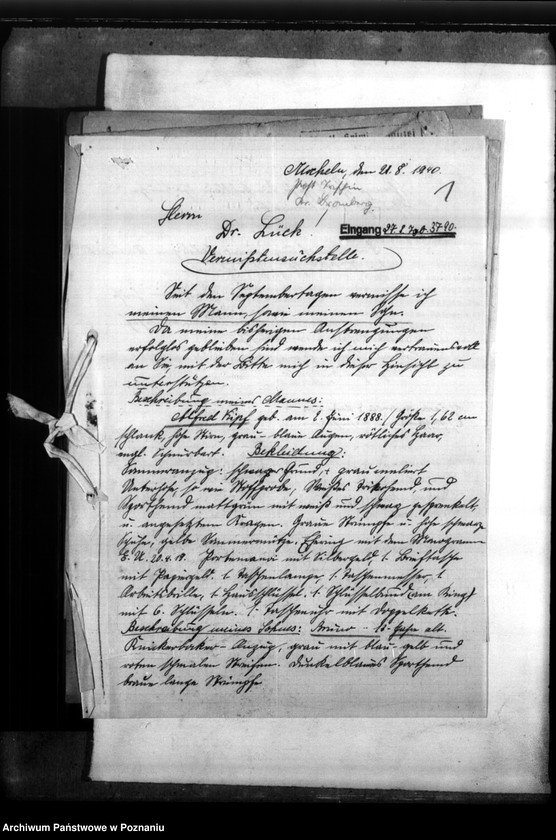 den 21.8.1940.
Post
Kr. Bromberg
1
Herrn
Dr. Lück!
Eingang 27.8.
Vermißtensuchstelle.
Seit den Septembertagen vermisse ich
meinen Mann, sowie meinen Sohn.
Da meine bisherigen Anstrengungen
erfolglos geblieben sind wende ich mich vertrauensvoll
an Sie mit der Bitte mich in dieser Hinsicht zu
unterstützen.
Beschreibung meines Mannes:
Alfred geb. am 2. Juni 1888. / Größe 1,62 cm
schlank, hohe Stirn, grau-blaue Augen, rötliches Haar,
Schnurbart. Bekleidung:
Sommeranzug: schwarzer Grund, grau meliert
Unterhose, so wie Stoffprobe, Trikothemd, und
Sporthemd mattgrün mit weiß und schwarz gesprenkelt,
u. angesetztem Kragen. Graue Strümpfe u. hohe schwarze
Schuhe, gelbe Sommermütze, Ehering mit dem Monogramm
20.4.19. Portemonai mit Silbergeld, 1 Brieftasche
mit Papiergeld. 1 Taschenlampe, 1 Taschenmesser, 1
Arbeitsbrille, 1 Hausschlüssel. 1 Schlüsselbund am Ring
mit 6 Schlüsseln. 1 Taschenuhr mit Doppelkette.
Beschreibung meines Sohnes: Bruno - Jahre alt.
Knickerbocker-Anzug, grau mit blau-gelb und
roten schmalen Streifen. Dunkelblaues Sporthemd
braune lange Strümpfe
Archiwum Państwowe w Poznaniu